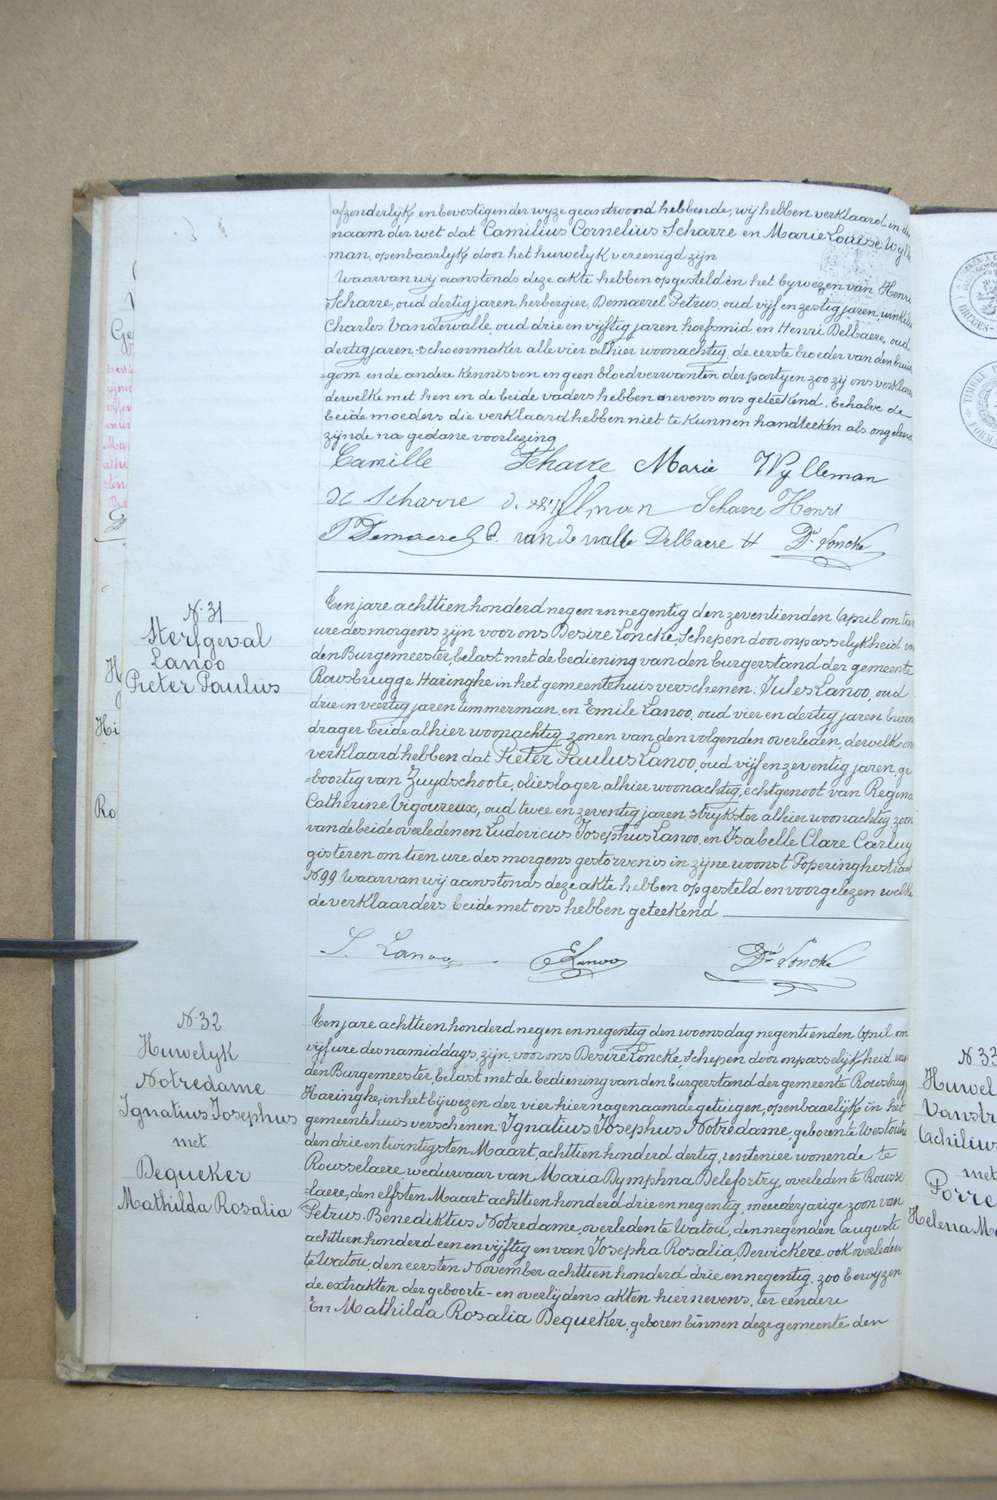 afzonderlyk en bevestigender wyze geantwoord hebbende, wij hebben verklaard in den
naam der wet dat Camilius Cornelius Scharre en Marie Louise Wylle
man, openbaarlyk door het huwelyk vereenigd zijn
Waarvan wij aanstonds deze akte hebben opgesteld in het bywezen van Henri
Scharre, oud dertig jaren herbergier, Demaerel Petrus, oud vijf en zestig jaren, winkel
Charles Vandewalle, oud drie en vijftig jaren hoefsmid en Henri Delbaere, oud
dertig jaren schoenmaker alle vier alhier woonachtig, de eerste broeder van den bruid
gom en de andere kennissen en geen bloedverwanten der partyen zoo zij ons verklaren
dewelke met hen en de beide vaders hebben nevens ons geteekend, behalve de
beide moeders die verklaard hebben niet te kunnen handteeken als ongeleerd
zijnde na gedane voorlezing
Camille Scharre Marie Wylleman
Scharre Scharre Henri
P Demaerel C. van de walle Delbaere H Dre Loncke
N. 31
Sterfgeval
Lanoo
Pieter Paulus
Een jare achttien honderd negen en negentig den zeventienden April om tien
ure des morgens zijn voor ons Desiré Loncke, Schepen door onpasselykheid van
den Burgemeester, belast met de bediening van den burgerstand der gemeente
Rousbrugge Haringhe in het gemeentehuis verschenen: Jules Lanoo, oud
drie in veertig jaren timmerman, en Emile Lanoo, oud vier en dertig jaren brieven
drager beide alhier woonachtig zonen van den volgenden overleden, dewelke ons
verklaard hebben dat Pieter Paulus Lanoo, oud vijf en zeventig jaren, ge
boortig van Zuydschoote, olieslager alhier woonachtig, echtgenoot van Regina
Catherine Vigoureux, oud twee en zeventig jaren strykster alhier woonachtig zoon
van de beide overledenen Ludovicus Josephus Lanoo, en Isabelle Clare Carluy
gisteren om tien ure des morgens gestorven is in zijne woonst Poperinghestraat
N. 99 Waarvan wij aanstonds deze akte hebben opgesteld en voorgelezen welke
de verklaarders beide met ons hebben geteekend
J. Lanoo E Lanoo Dre Loncke
N. 32
Huwelyk
Notredame
Ignatius Josephus
met
Dequeker
Mathilda Rosalia
Een jare achttien honderd negen en negentig den woensdag negentienden April om
vijf ure des namiddags, zijn, voor ons Desiré Loncke, Schepen door onpasselykheid van
den Burgemeester, belast met de bediening van den burgerstand der gemeente Rousbrugge
Haringhe, in het bijwezen der vier hiernagenaamde getuigen, openbaarlijk in het
gemeentehuis verschenen: Ignatius Josephus Notredame, geboren te Westoutre
den drie en twintigsten Maart, achttien honderd dertig, rentenier wonende te
Rousselaere, weduwaar van Maria Dymphna Delefortry, overleden te Rousse
laere, den elfsten Maart achttien honderd drie en negentig, meerderjarige zoon van
Petrus Benediktus Notredame, overleden te Watou, den negenden Auguste
achttien honderd een en vijftig en van Josepha Rosalia Dewickere ook overleden
te Watou, den eersten November achttien honderd drie en negentig, zoo bewyzen
de extrakten der geboorte- en overlijdens akten hiernevens, ter eendere
En Mathilda Rosalia Dequeker, geboren binnen deze gemeente den
N. 33
Huwel
Vanstr
Achilius
met
Porre
Helena Ma
Hi
Ro